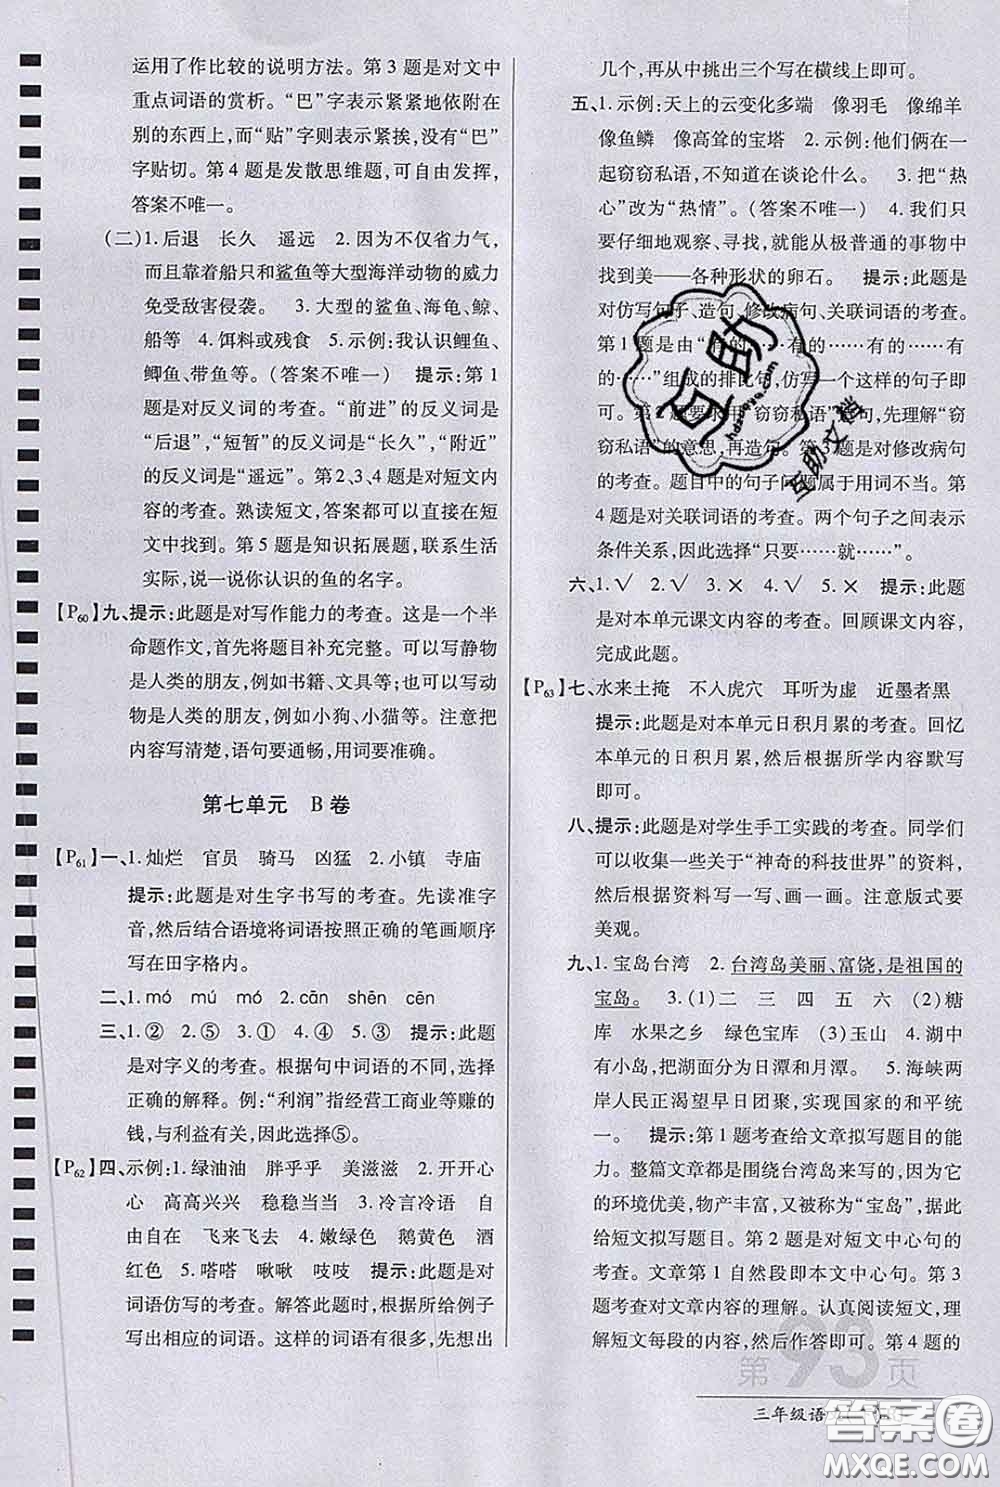 运用了作比较的说明方法。第3题是对文中
重点词语的赏析。“巴”字表示紧紧地依附在
别的东西上,而“贴”字则表示紧挨,没有“巴”
字贴切。第4题是发散思维题,可自由发挥,
答案不唯一。
(二)1.后退 长久 遥远 2.因为不仅省力气,
而且靠着船只和鲨鱼等大型海洋动物的威力
免受敌害侵袭。 3.大型的鲨鱼、海龟、鲸、
船等 4.饵料或残食 5.示例:我认识鲤鱼、
鲫鱼、带鱼等。(答案不唯一) 提示:第1
题是对反义词的考查。“前进”的反义词是
“后退”,“短暂”的反义词是“长久”,“附近”
的反义词是“遥远”。第2、3、4题是对短文内
容的考查。熟读短文,答案都可以直接在短
文中找到。第5题是知识拓展题,联系生活
实际,说一说你认识的鱼的名字。
【P60】九、提示:此题是对写作能力的考查。这是一个半
命题作文,首先将题目补充完整。可以写静物
是人类的朋友,例如书籍、文具等;也可以写动
物是人类的朋友,例如小狗、小猫等。注意把
内容写清楚,语句要通畅,用词要准确。
第七单元 B卷
【P61】一、1.灿烂 官员 骑马 凶猛 2.小镇 寺庙
提示:此题是对生字书写的考查。先读准字
音,然后结合语境将词语按照正确的笔画顺序
写在田字格内。
二、1.mó mú mó 2.cān shēn cēn
三、1.② 2.⑤ 3.① 4.④ 5.③ 提示:此题
是对字义的考查。根据句中词语的不同,选择
正确的解释。例:“利润”指经营工商业等赚的
钱,与利益有关,因此选择⑤。
【P62】四、示例:1.绿油油 胖乎乎 美滋滋 2.开开心
心 高高兴兴 稳稳当当 3.冷言冷语 自
由自在 飞来飞去 4.嫩绿色 鹅黄色 酒
红色 5.嗒嗒 啾啾 吱吱 提示:此题是对
词语仿写的考查。解答此题时,根据所给例子
写出相应的词语。这样的词语有很多,先想出
几个,再从中挑出三个写在横线上即可。
五、1.示例:天上的云变化多端 像羽毛 像绵羊
像鱼鳞 像高耸的宝塔 2.示例:他们俩在一
起窃窃私语,不知道在谈论什么。 3.把“热
心”改为“热情”。(答案不唯一) 4.我们只要
仔细地观察、寻找,就能从极普通的事物中
找到美——各种形状的卵石。 提示:此题是
对仿写句子、造句、修改病句、关联词语的考查。
第1题是由“有的……有的……有的……有的
……”组成的排比句,仿写一个这样的句子即
可。第2题要求用“窃窃私语”造句,先理解“窃
窃私语”的意思,再造句。第3题是对修改病句
的考查。题目中的句子问题属于用词不当。第
4题是对关联词语的考查。两个句子之间表示
条件关系,因此选择“只要……就……”。
六、1.√ 2.√ 3.× 4.√ 5.× 提示:此题
是对本单元课文内容的考查。回顾课文内容,
完成此题。
【P63】七、水来土掩 不入虎穴 耳听为虚 近墨者黑
提示:此题是对本单元日积月累的考查。回忆
本单元的日积月累,然后根据所学内容默写
即可。
八、提示:此题是对学生手工实践的考查。同学们
可以收集一些关于“神奇的科技世界”的资料,
然后根据资料写一写、画一画。注意版式要
美观。
九、1.宝岛台湾 2.台湾岛美丽、富饶,是祖国的
宝岛。 3.(1)二 三 四 五 六 (2)糖
库 水果之乡 绿色宝库 (3)玉山 4.湖中
有小岛,把湖面分为日潭和月潭。 5.海峡两
岸人民正渴望早日团聚,实现国家的和平统
一。 提示:第1题考查给文章拟写题目的能
力。整篇文章是围绕台湾岛来写的,因为它
的环境优美,物产丰富,又被称为“宝岛”,据此
给短文拟写题目。第2题是对短文中心句的考
查。文章第1自然段即本文中心句。第3
题考查对文章内容的理解。认真阅读短文,理
解短文每段的内容,然后作答即可。第4题的
第93页
三年级语
互助
Hdzuoye.com
互助文档
答案圈
MXQE.COM